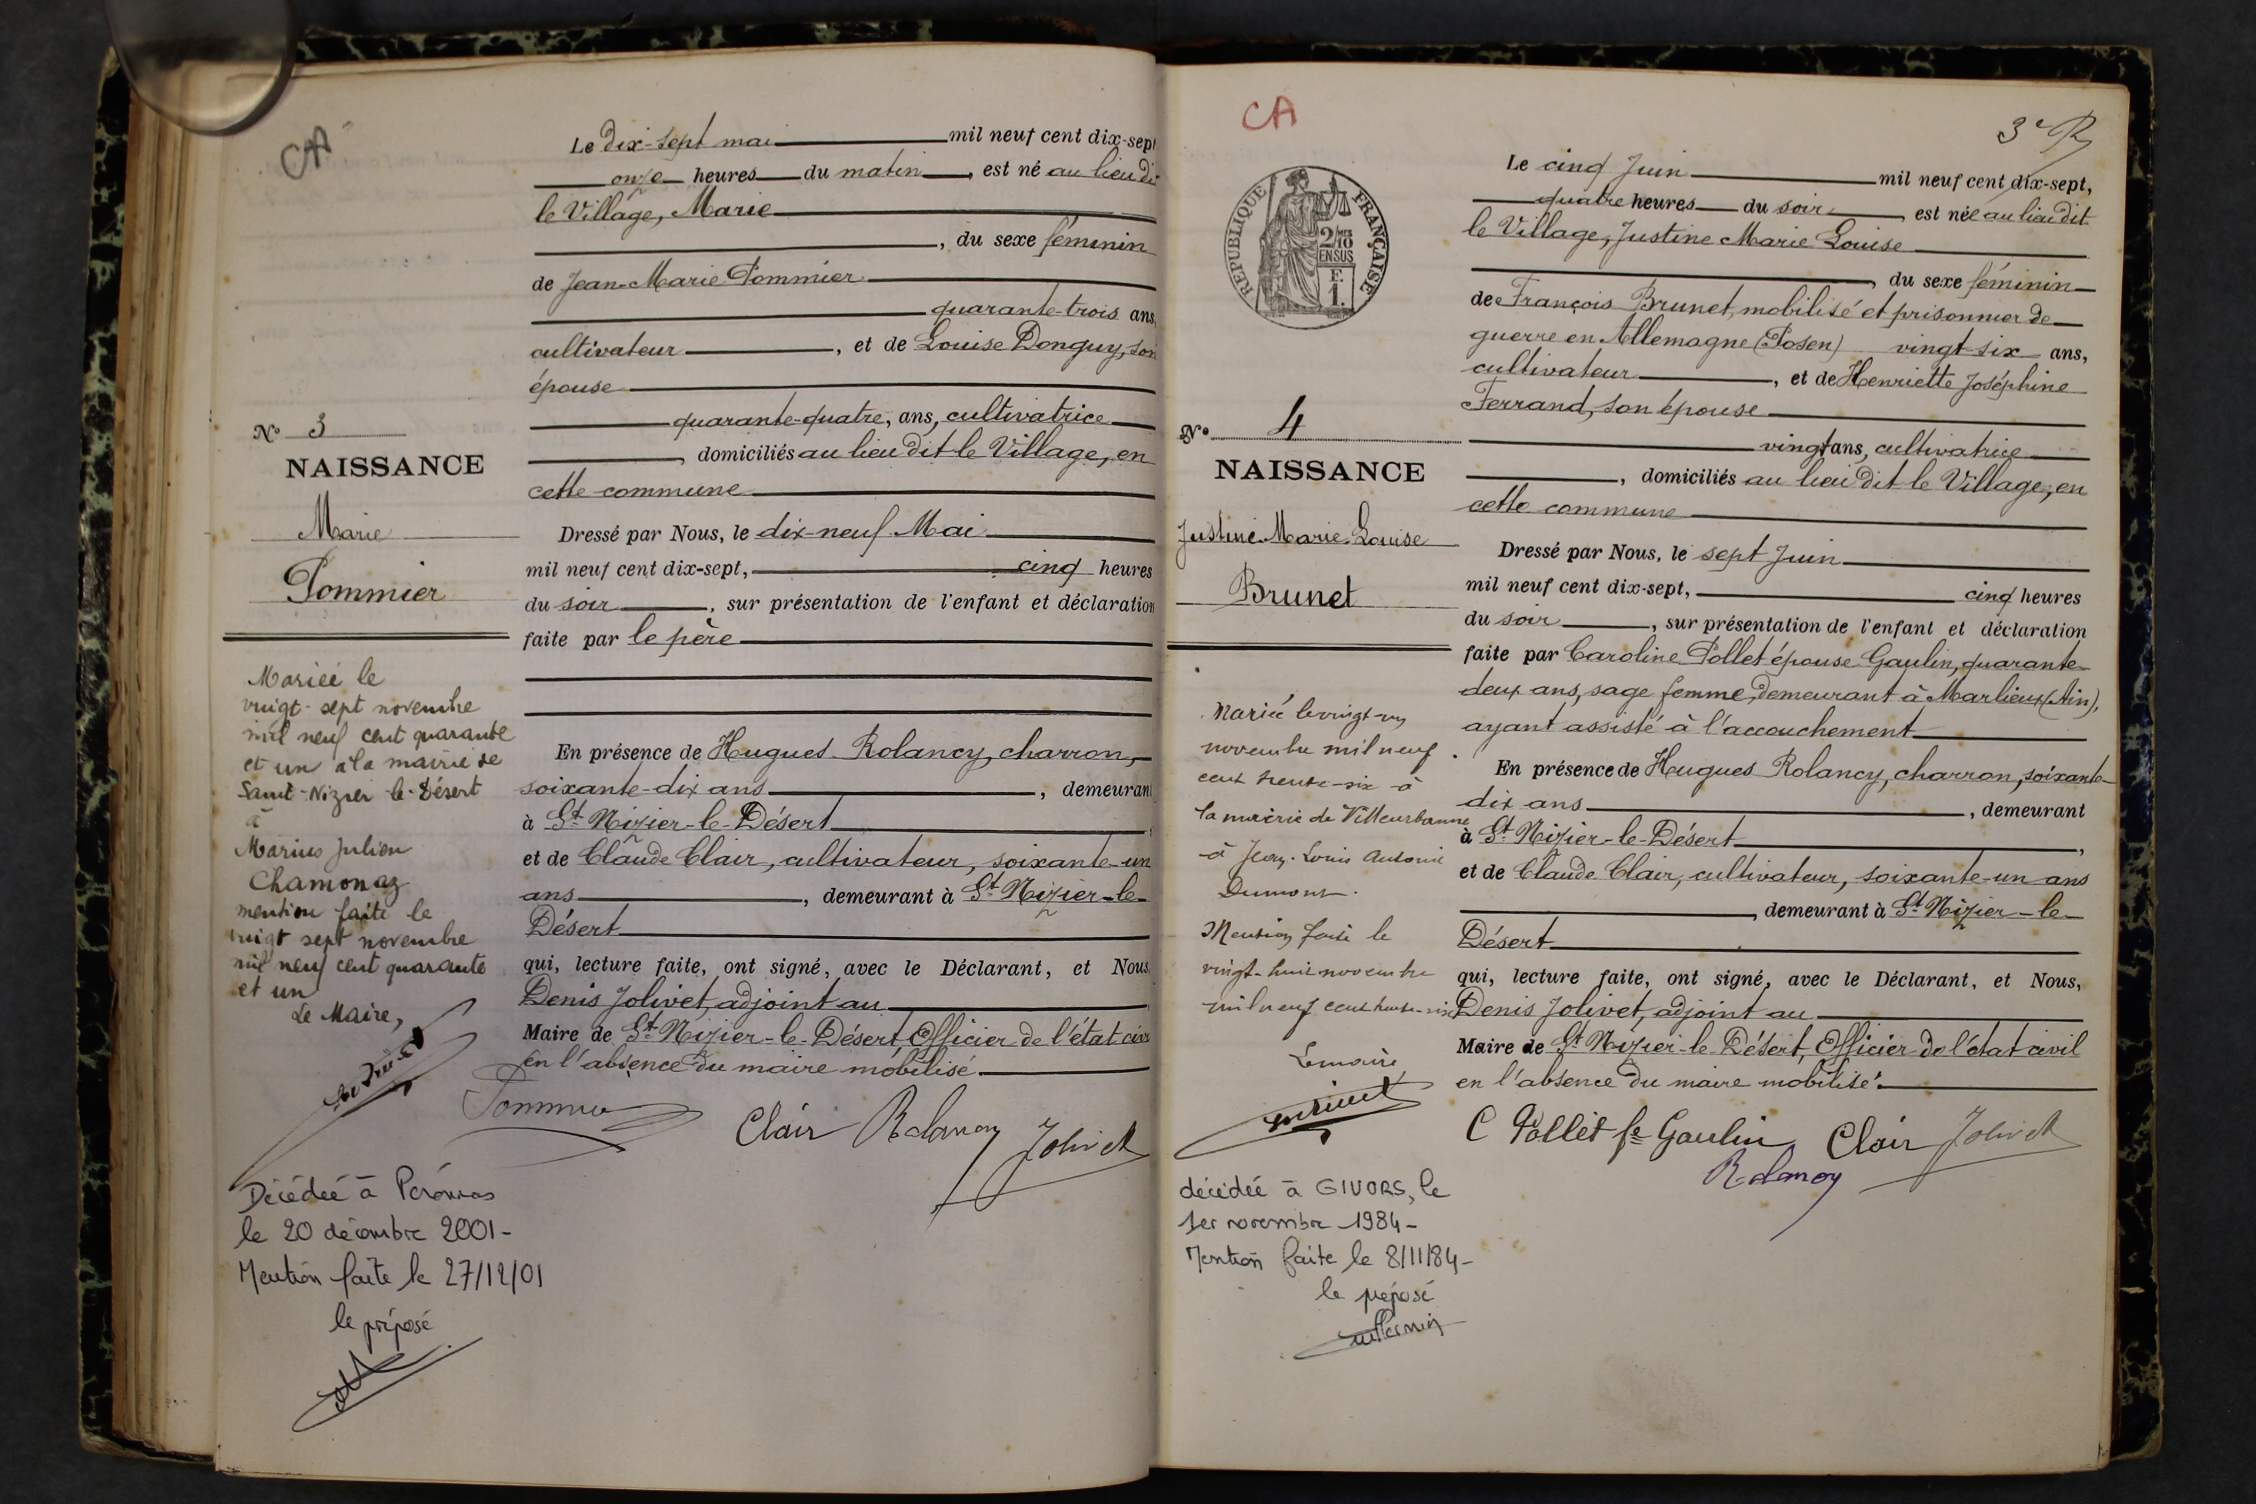 CA
Le dix-sept mai mil neuf cent dix-sept
onze heures du matin, est né au lieu di
le Village, Marie
, du sexe féminin
de Jean-Marie Pommier
quarante-trois ans,
cultivateur, et de Louise Donguy, son
épouse
quarante-quatre, ans, cultivatrice
, domiciliés au lieu dit le Village, en
cette commune
Dressé par Nous, le dix-neuf Mai
mil neuf cent dix-sept, cinq heures
du soir, sur présentation de l'enfant et déclaration
faite par le père
En présence de Hugues Rolancy, charron,
soixante-dix ans, demeurant
à St Nizier-le-Désert
et de Claude Clair, cultivateur, soixante-un
ans, demeurant à St Nizier-le-
Désert
qui, lecture faite, ont signé, avec le Déclarant, et Nous,
Denis Jolivet, adjoint au
Maire de St Nizier-le-Désert, Officier de l'état civi
en l'absence du maire mobilisé.
Pommier
Clair Rolancy Jolivet
No 3
NAISSANCE
Marie
Pommier
Mariée le
vingt-sept novembre
mil neuf cent quarante
et un à la mairie de
Saint-Nizier-le-Désert
à
Marius Julien
Chamonaz
mention faite le
vingt sept novembre
mil neuf cent quarante
et un
Le Maire,
Décédée à Péronnas
le 20 décembre 2001-
Mention faite le 27/12/01
le préposé
CA
3e R
REPUBLIQUE FRANÇAISE
2/10
EN SUS
E.
1.
Le cinq Juin mil neuf cent dix-sept,
quatre heures du soir, est née au lieu dit
le Village, Justine Marie Louise
, du sexe féminin
de François Brunet, mobilisé et prisonnier de
guerre en Allemagne (Posen) vingt-six ans,
cultivateur, et de Henriette Joséphine
Ferrand, son épouse
vingt ans, cultivatrice
, domiciliés au lieu dit le Village, en
cette commune
Dressé par Nous, le sept Juin
mil neuf cent dix-sept, cinq heures
du soir, sur présentation de l'enfant et déclaration
faite par Caroline Pollet épouse Gaulin, quarante-
deux ans, sage femme, demeurant à Marlieux (Ain),
ayant assisté à l'accouchement
En présence de Hugues Rolancy, charron, soixante-
dix ans, demeurant
à St Nizier-le-Désert,
et de Claude Clair, cultivateur, soixante-un ans
, demeurant à St Nizier-le-
Désert
qui, lecture faite, ont signé, avec le Déclarant, et Nous,
Denis Jolivet, adjoint au
Maire de St Nizier-le-Désert, Officier de l'état civil
en l'absence du maire mobilisé.
C Pollet fe Gaulin Clair Jolivet
Rolancy
No 4
NAISSANCE
Justine Marie Louise
Brunet
Mariée le vingt-un
novembre mil neuf
cent trente-six à
la mairie de Villeurbanne
à Jean-Louis Antoine
Dumont.
Mention faite le
vingt-huit novembre
mil neuf cent trente-six
Le maire,
décédée à GIVORS, le
1er novembre 1984-
Mention faite le 8/11/84-
le préposé